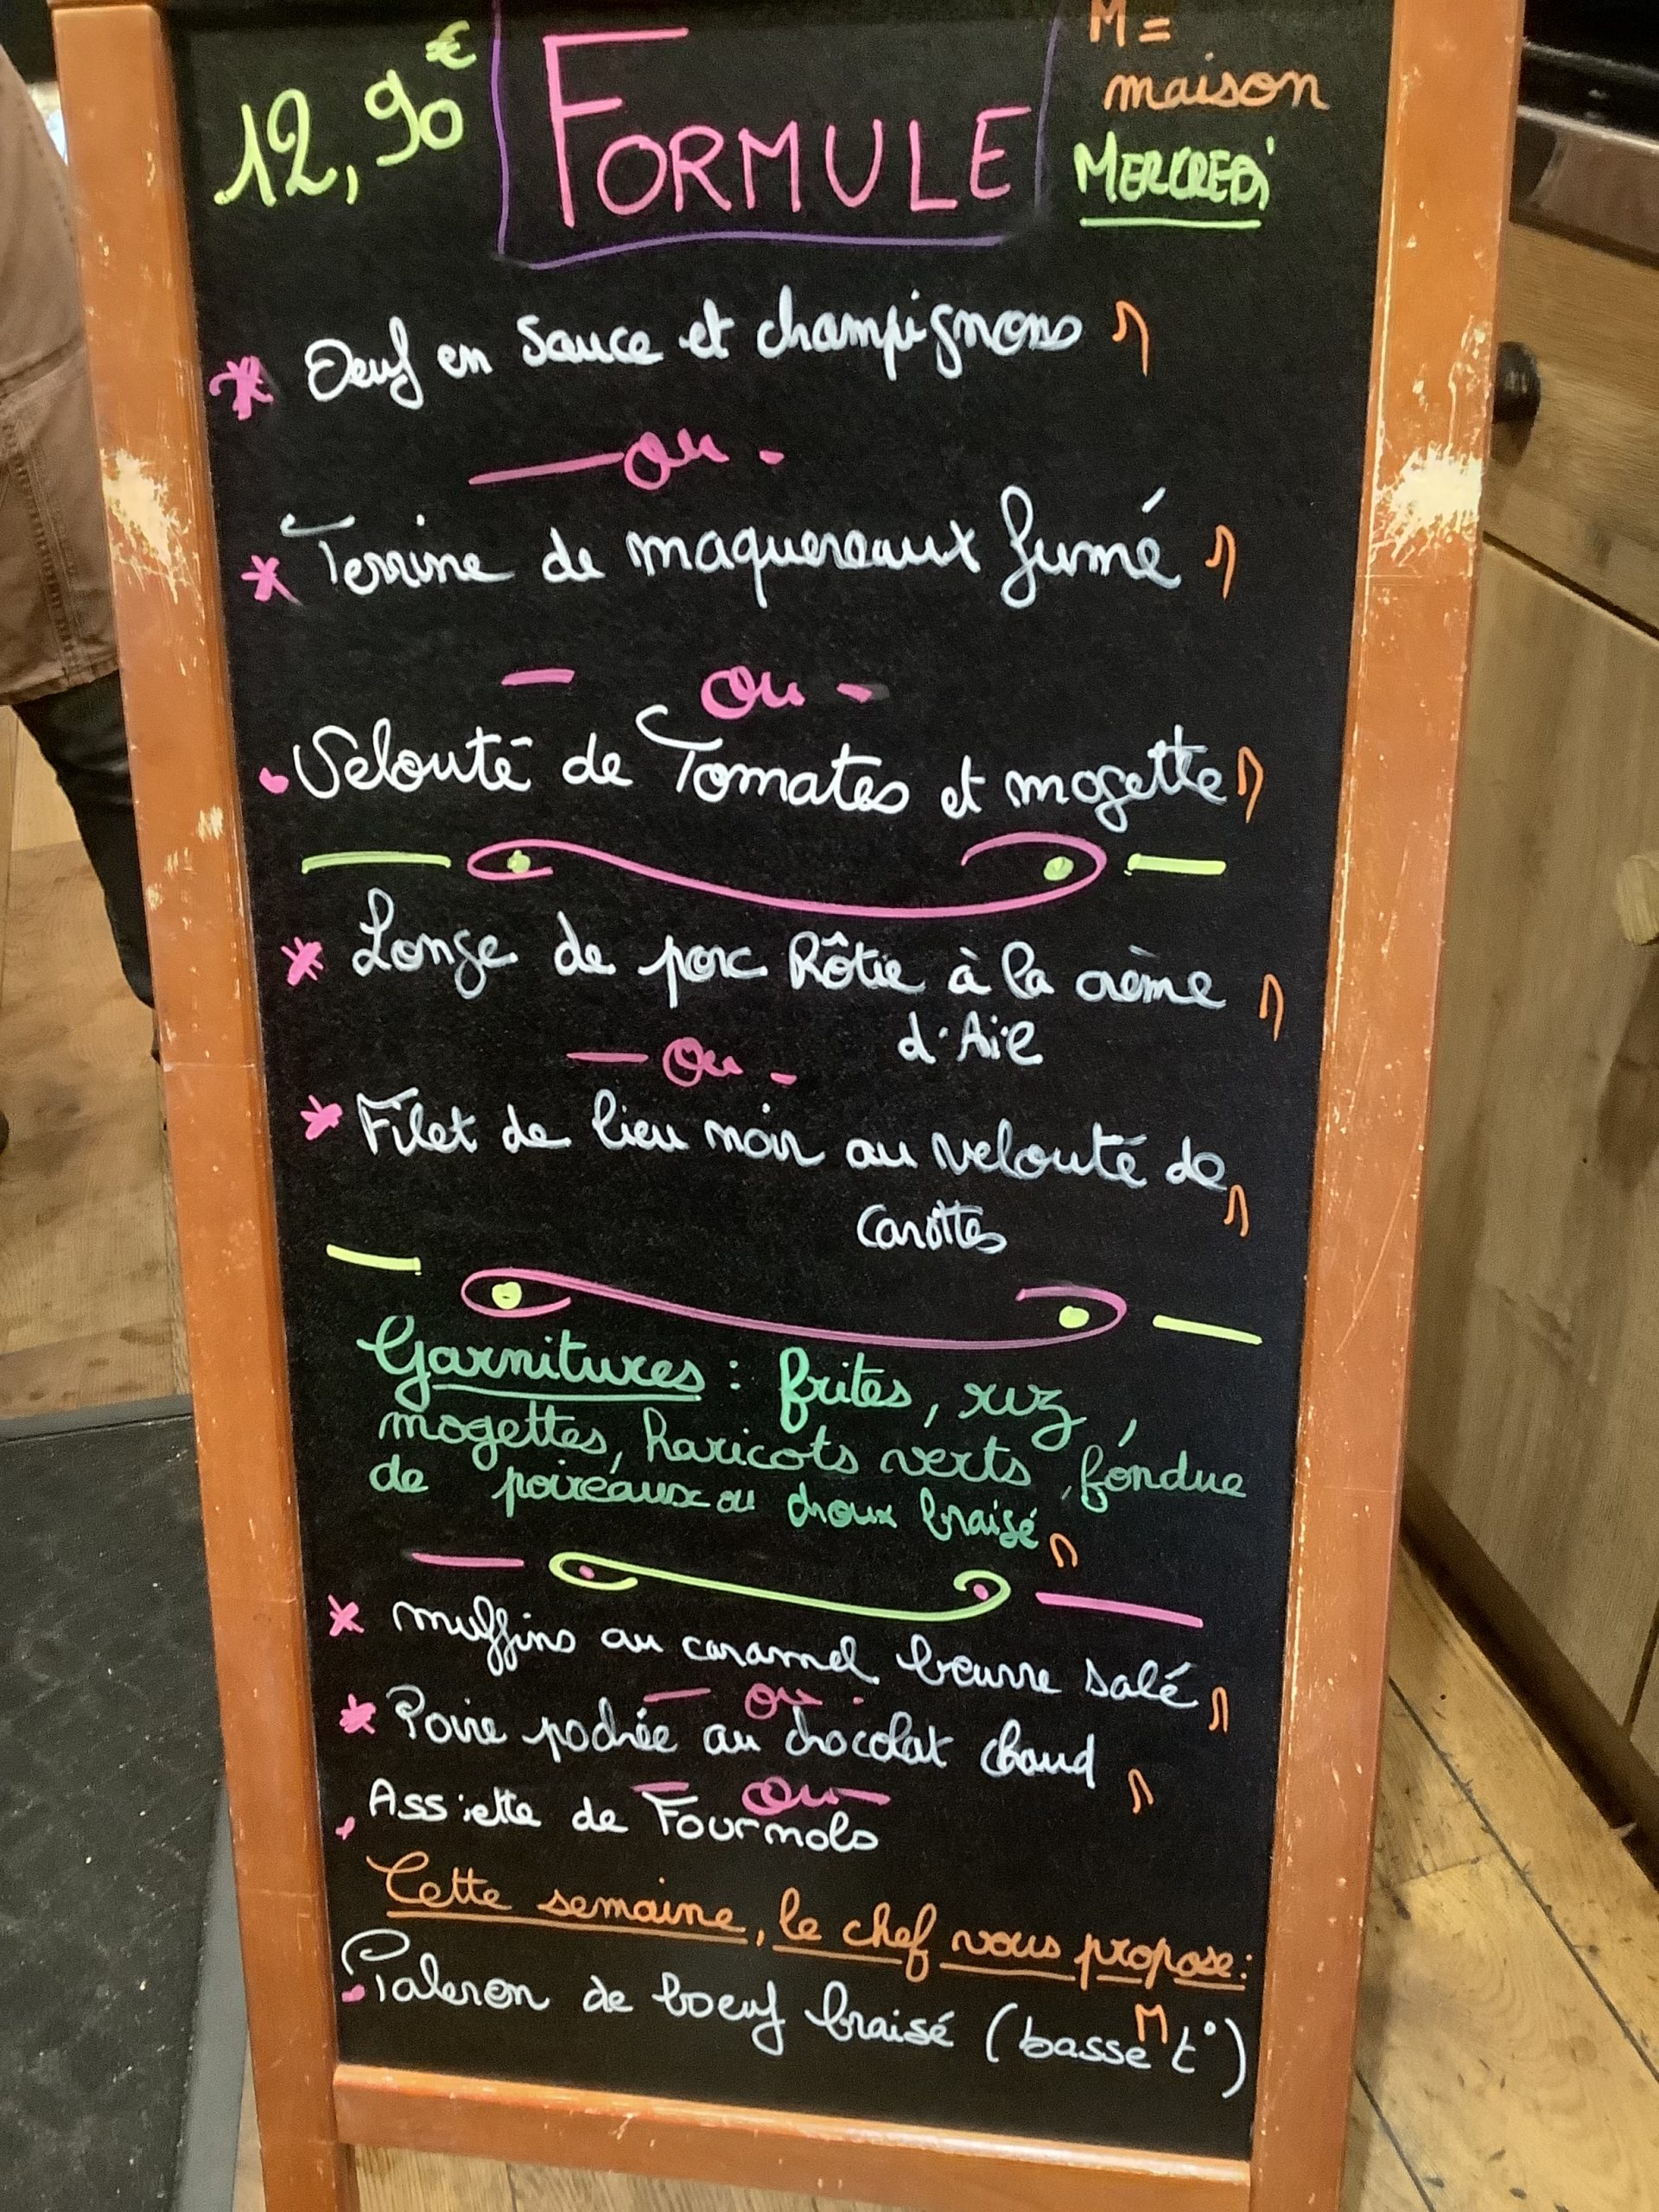 12,90€ FORMULE M = maison
MERCREDI
* Oeuf en sauce et champignons M
— ou -
* Terrine de maquereaux fumé M
- ou -
. Velouté de Tomates et mogette M
* Longe de porc Rôtie à la crème M
d'Ail
— ou -
* Filet de lieu noir au velouté de M
carottes
Garnitures : frites, riz,
mogettes, haricots verts, fondue
de poireaux ou choux braisé M
* muffins au caramel beurre salé M
— ou -
* Poire pochée au chocolat chaud M
- ou -
. Assiette de Fourmols
Cette semaine, le chef vous propose :
. Paleron de boeuf braisé (basse t°) M